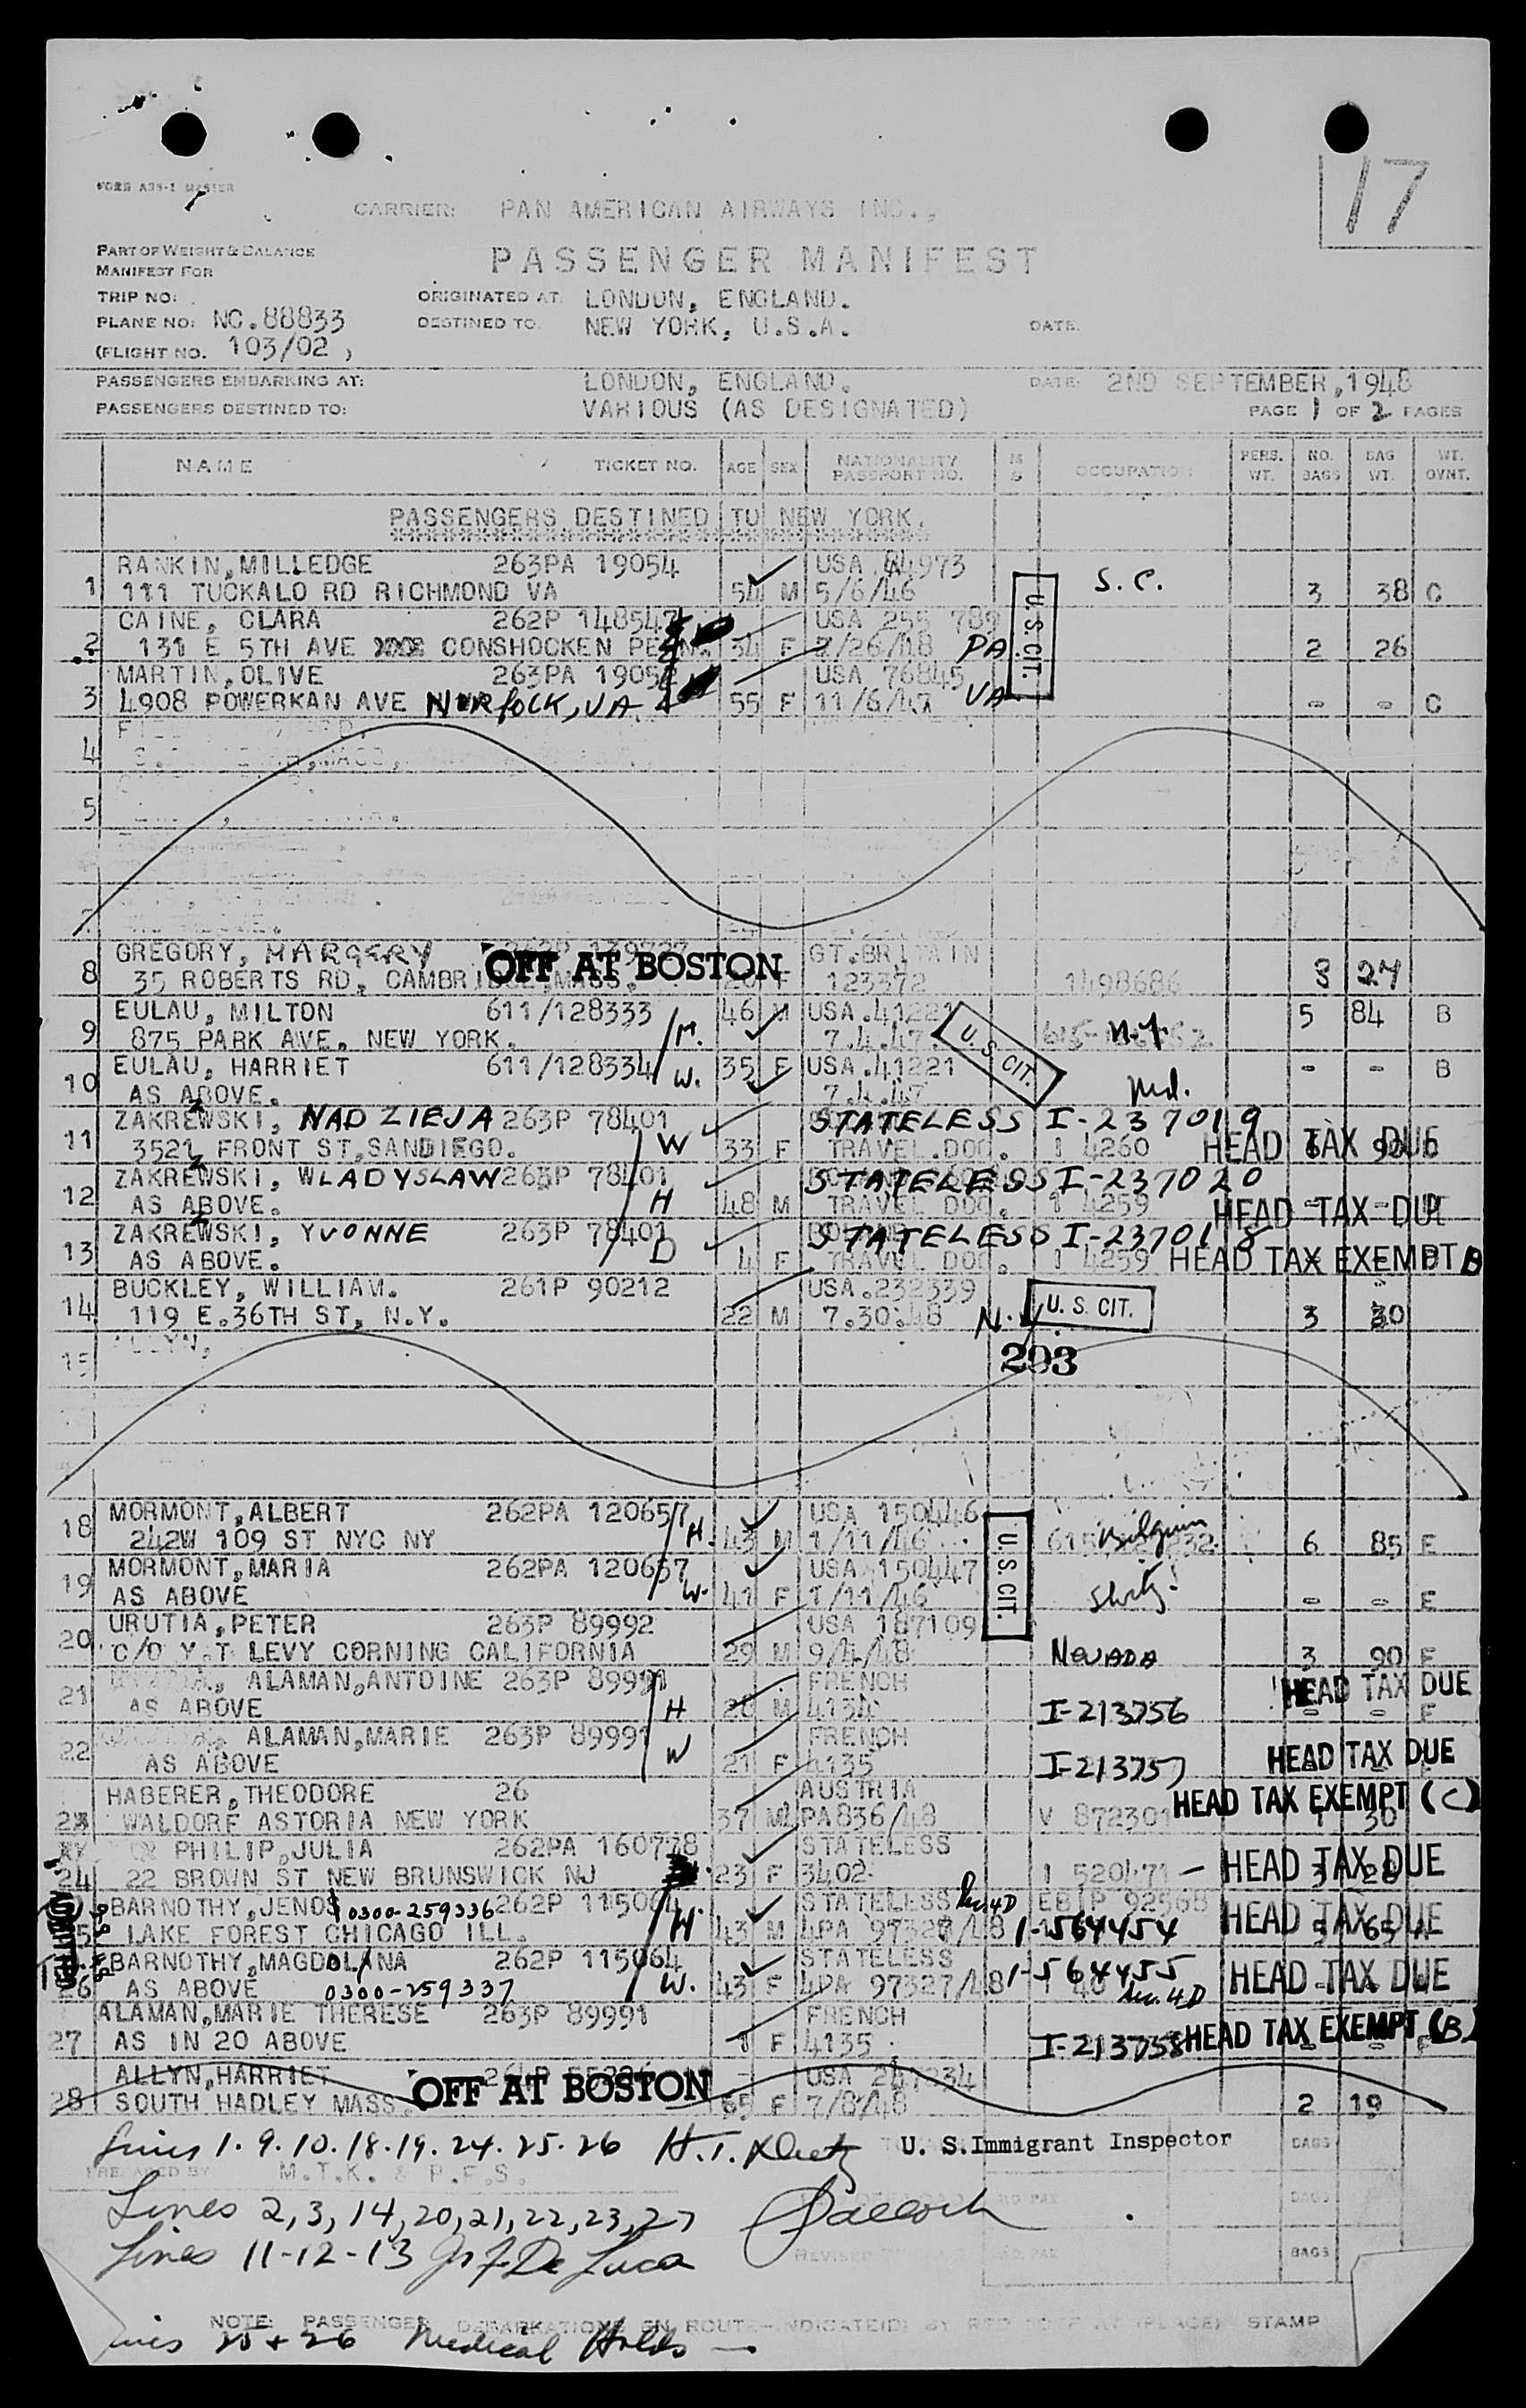 17
FORM ADS-1 MASTER
CARRIER: PAN AMERICAN AIRWAYS INC.,
PART OF WEIGHT & BALANCE
MANIFEST FOR
PASSENGER MANIFEST
TRIP NO: ORIGINATED AT: LONDON, ENGLAND.
PLANE NO: NC.88833 DESTINED TO: NEW YORK, U.S.A. DATE:
(FLIGHT NO. 103/02 )
PASSENGERS EMBARKING AT: LONDON, ENGLAND. DATE: 2ND SEPTEMBER,1948
PASSENGERS DESTINED TO: VARIOUS (AS DESIGNATED) PAGE 1 OF 2 PAGES
NAME TICKET NO. AGE SEX NATIONALITY PASSPORT NO. M S OCCUPATION PERS. WT. NO. BAGS BAG WT. WT. OVNT.
PASSENGERS DESTINED TO NEW YORK.
RANKIN,MILLEDGE 263PA 19054 USA 44973
1 111 TUCKALO RD RICHMOND VA 54 M 5/6/46 S.C. 3 38 C
CAINE, CLARA 262P 148547 USA 255 789
2 131 E 5TH AVE CONSHOCKEN PENN. 34 F 7/26/48 PA U.S. CIT. 2 26
MARTIN,OLIVE 263PA 1905 USA 76845
3 4908 POWERKAN AVE NORFOLK, VA 55 F 11/6/47 VA - - C
4
5
7
GREGORY, MARGERY GT.BRITAIN
8 35 ROBERTS RD, CAMBRIDGE,MASS. OFF AT BOSTON F 123372 1498686 3 24
EULAU, MILTON 611/128333 46 M USA.41221 5 84 B
9 875 PARK AVE, NEW YORK. M. 7.4.47. U. S. CIT. N.Y.
EULAU, HARRIET 611/128334 35 F USA.41221 - - B
10 AS ABOVE. W. 7.4.47 Md.
ZAKREWSKI, NADZIEJA 263P 78401 STATELESS I-237019
11 3521 FRONT ST,SANDIEGO. W 33 F TRAVEL.DOC. I 4260 HEAD TAX DUE
ZAKREWSKI, WLADYSLAW 263P 78401 STATELESS I-237020
12 AS ABOVE. H 48 M TRAVEL DOC. I 4259 HEAD TAX DUE
ZAKREWSKI, YVONNE 263P 78401 STATELESS I-237018
13 AS ABOVE. D 4 F TRAVEL DOC. I 4259 HEAD TAX EXEMPT B
BUCKLEY, WILLIAM. 261P 90212 USA.232339
14 119 E.36TH ST, N.Y. 22 M 7.30.48 N.Y. U. S. CIT. 3 30
15 ALLYN, 293
MORMONT,ALBERT 262PA 120657 USA 150446
18 242W 109 ST NYC NY H. 43 M 1/11/46 Belgium 6 85 E
MORMONT,MARIA 262PA 120657 USA 150447
19 AS ABOVE W. 41 F 1/11/46 U. S. CIT. Switz. - - E
URUTIA,PETER 263P 89992 USA 187109
20 C/O Y.T LEVY CORNING CALIFORNIA 29 M 9/4/48 NEVADA 3 90 E
ALAMAN,ANTOINE 263P 89991 FRENCH HEAD TAX DUE
21 AS ABOVE H 26 M 4134 I-213756 - - E
ALAMAN,MARIE 263P 89991 FRENCH
22 AS ABOVE W 21 F 4135 I-213757 HEAD TAX DUE
HABERER,THEODORE 26 AUSTRIA
23 WALDORF ASTORIA NEW YORK 37 M PA836/48 V 872301 HEAD TAX EXEMPT (C) 1 30
PHILIP,JULIA 262PA 160778 STATELESS
24 22 BROWN ST NEW BRUNSWICK NJ 23 F 3402 I 520471 - HEAD TAX DUE 3 28
BARNOTHY,JENOS 0300-259336 262P 115064 STATELESS Sec. 4D EBIP 92568
25 LAKE FOREST CHICAGO ILL. H. 43 M 4PA 97328/48 1-564454 HEAD TAX DUE 5 65
BARNOTHY,MAGDOLANA 262P 115064 STATELESS 1-564455
26 AS ABOVE 0300-259337 W. 43 F 4PA 97327/48 Sec. 4D HEAD TAX DUE
ADMITTED
ALAMAN,MARIE THERESE 263P 89991 FRENCH
27 AS IN 20 ABOVE 1 F 4135 I-213758 HEAD TAX EXEMPT (B)
ALLYN,HARRIET USA 247334
28 SOUTH HADLEY MASS. OFF AT BOSTON 65 F 7/8/48 2 19
Lines 1.9.10.18.19.24.25.26 U. S.Immigrant Inspector BAGS
PREPARED BY M.T.K. & P.F.S.
Lines 2,3,14,20,21,22,23,27
BAGS
Lines 11-12-13 De Luca
REVISED BAGS
NOTE: PASSENGER DEBARKATIONS EN ROUTE INDICATE(D) BY (PLACE) STAMP
Lines 25+26 Medical Holds